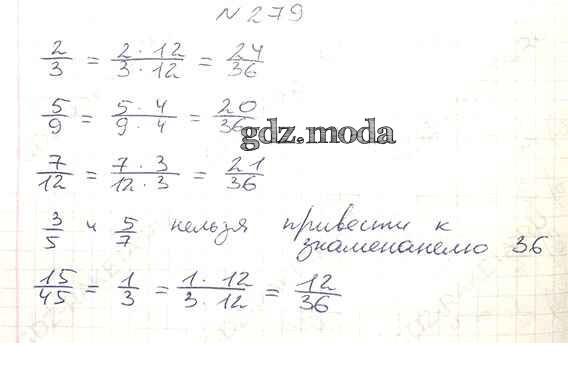 N 279
2/3 = 2 · 12 / 3 · 12 = 24/36
5/9 = 5 · 4 / 9 · 4 = 20/36
gdz.moda
7/12 = 7 · 3 / 12 · 3 = 21/36
3/5 и 5/7 нельзя привести к
знаменателю 36
15/45 = 1/3 = 1 · 12 / 3 · 12 = 12/36